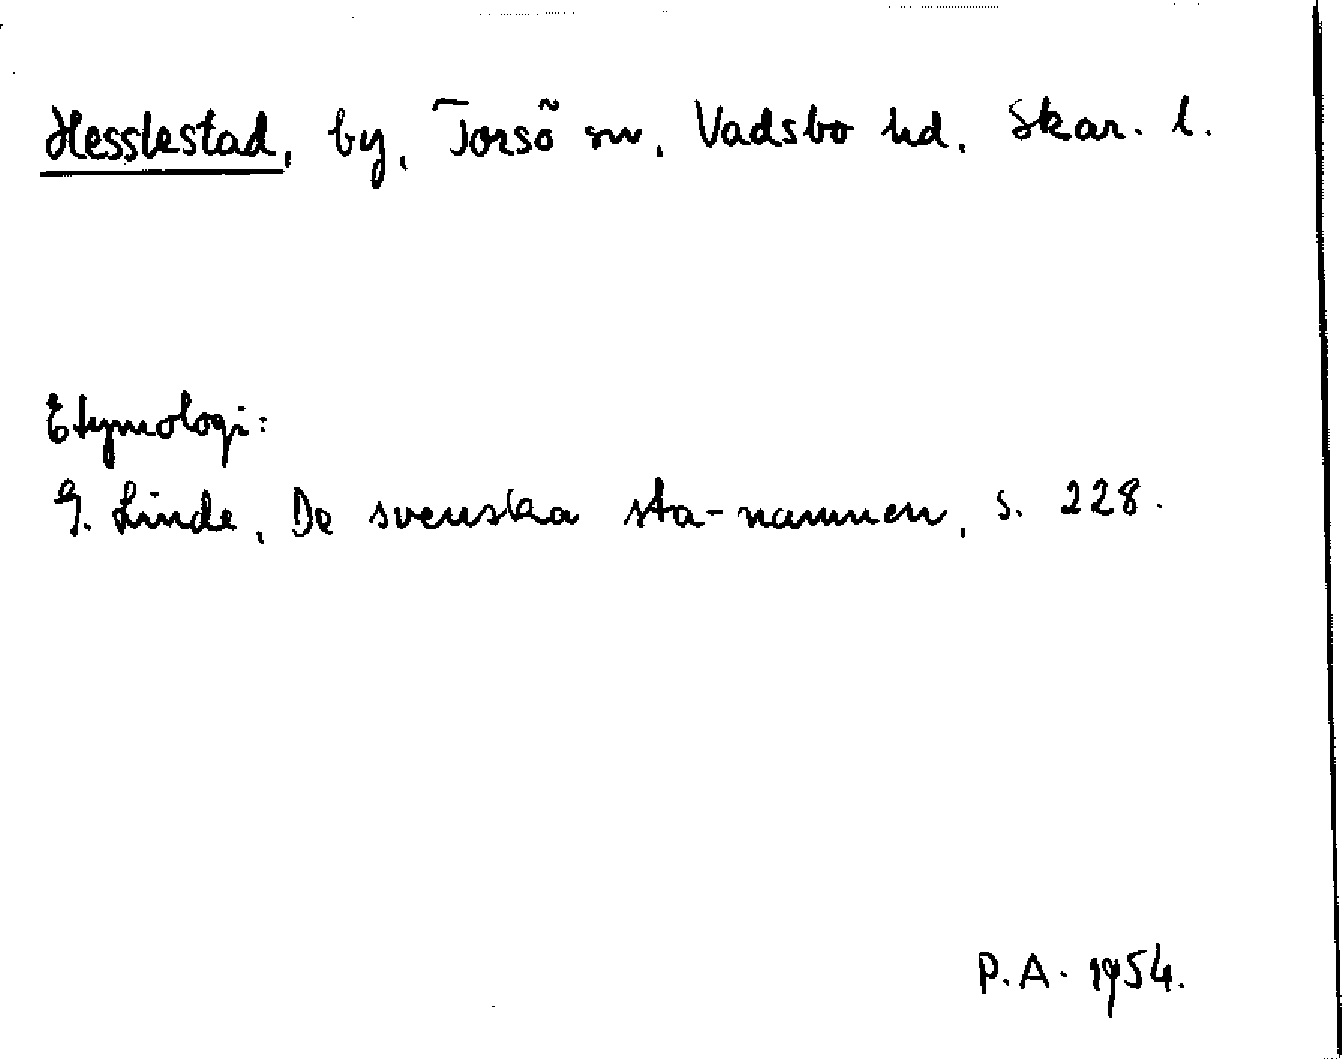 Hesslestad, by, Torsö sn, Vadsbo hd. Skar. l.
Etymologi:
G. Linde, De svenska sta-namnen, s. 228.
P.A. 1954.